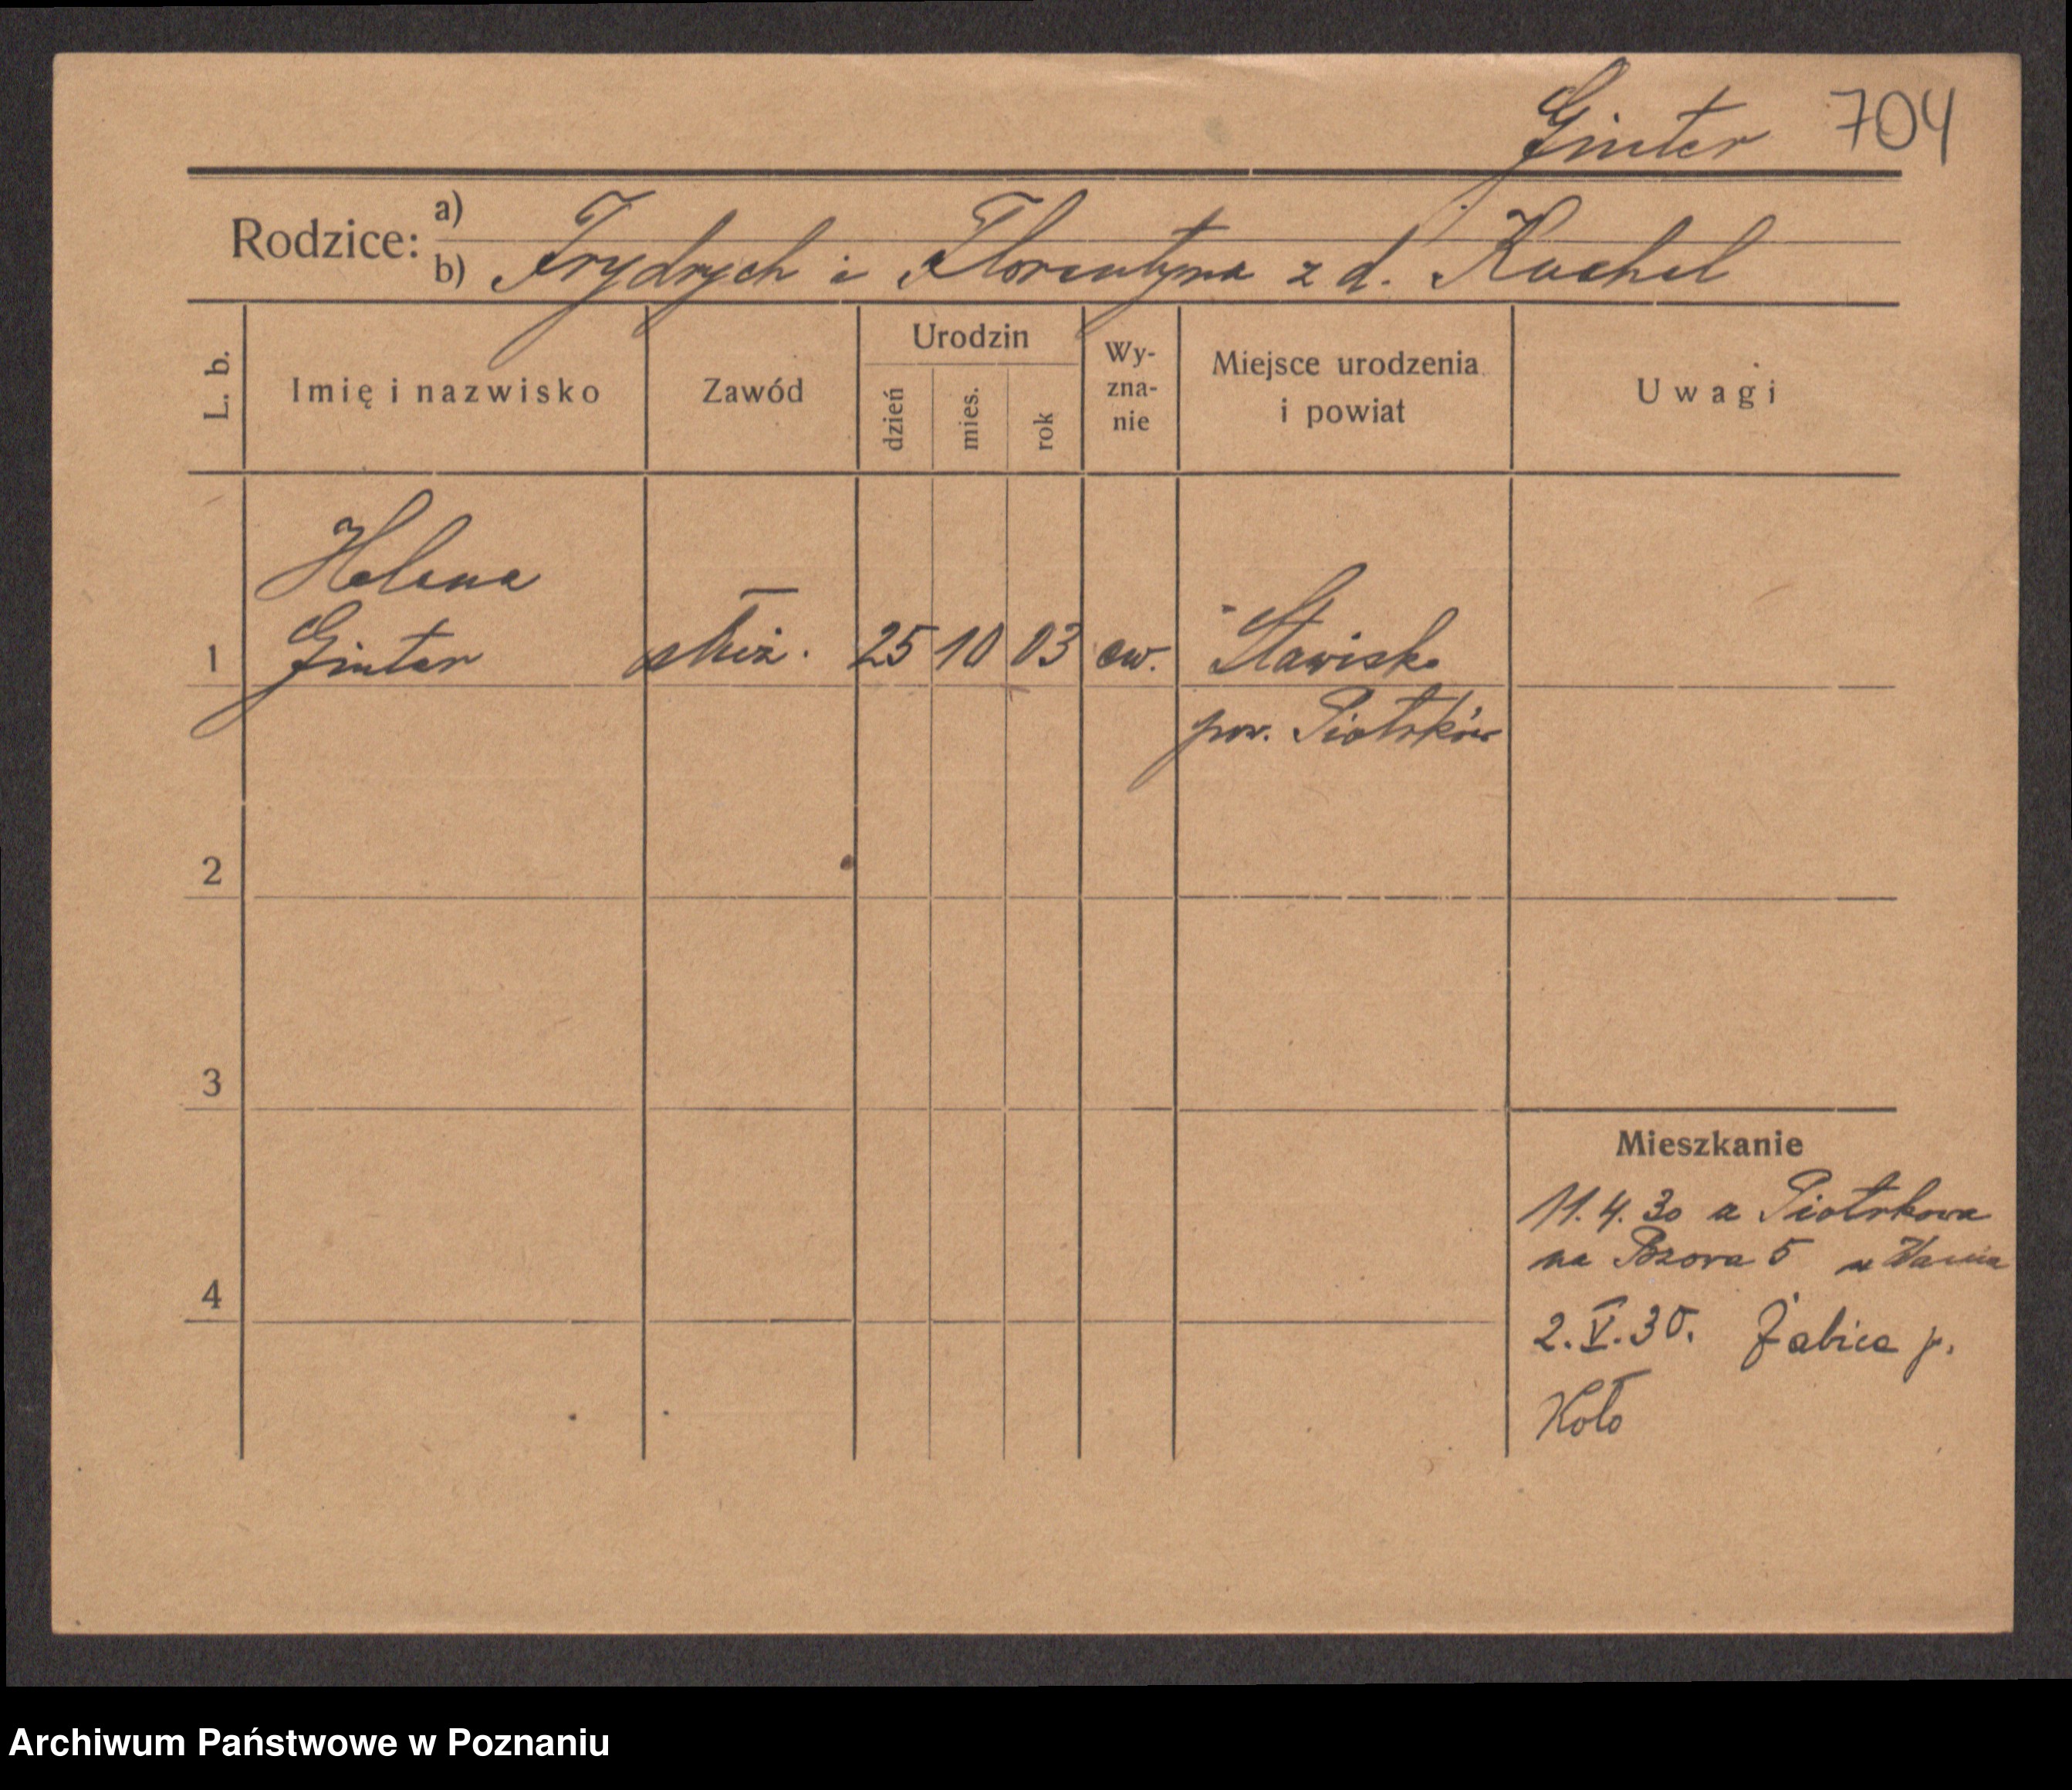 Ginter 704
Rodzice: a)
b) Frydrych i Florentyna z d. Kuchel
L. b. Imię i nazwisko Zawód Urodzin dzień mies. rok Wy-zna-nie Miejsce urodzenia i powiat Uwagi
Helena
1 Ginter służ. 25 10 03 ew. Stawisko
pow. Piotrków
2
3
Mieszkanie
11.4.30 z Piotrkowa
na 5
4
2.V.30. Żabica p.
Koło
Archiwum Państwowe w Poznaniu